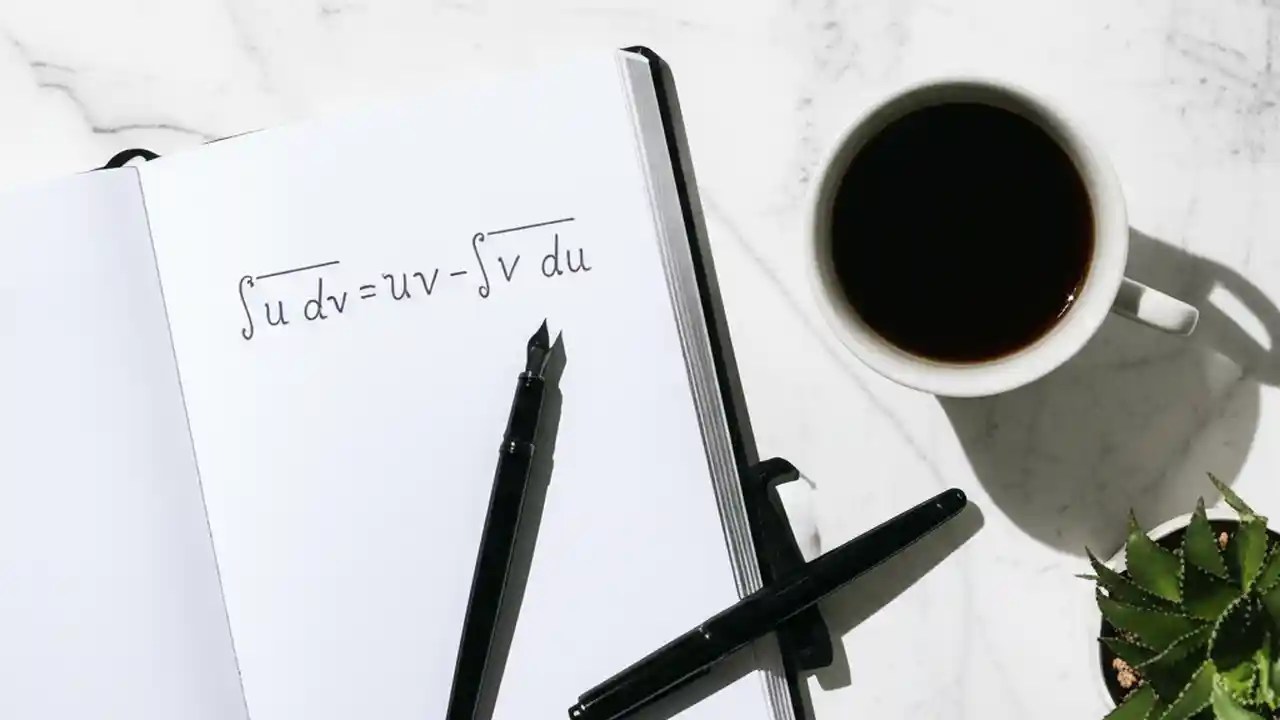 ∫u dv = uv - ∫v du